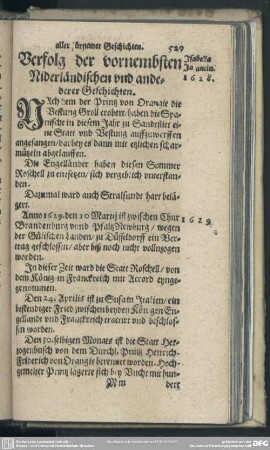 aller fürnemer Geschichten.
529
Verfolg der vornembsten
Niderländischen vnd ande-
derer Geschichten.
Isabella
1628.
Nach dem der Printz von Orangie die
Vestung Groll erobert / haben die Spa-
nische in diesem Jahr zu Sandvliet ei-
ne Statt vnd Vestung auffzuwerffen
angefangen / darbey es dann mit etzlichen schar-
mützeln abgelauffen.
Die Engelländer haben diesen Sommer
Roschell zu entsetzen / sich vergeblich vnterstan-
den.
Dazumal ward auch Stralsundt hart belä-
gert.
Anno 1629. den 10 Martij ist zwischen Chur
Brandenburg vnnd Pfaltz Newburg / wegen
der Gülischen Landen / zu Düsseldorff ein Ver-
trag geschlossen / aber biß noch nicht vollnzogen
worden.
1629
In dieser Zeit ward die Statt Roschell / von
dem König in Franckreich mit Accord eynge-
genommen.
Den 24. Aprilis ist zu Susa in Italien / ein
bestendiger Fried zwischen beyden Königen En-
gellande vnd Franckreich tractirt vnd beschlos-
sen worden.
Den 30. selbigen Monats ist die Statt Her-
zogenbusch von dem Durchl. Printz Henrich-
Friderich von Orangie berennet worden. Hoch-
gemelter Printz lägerte sich bey Vucht mit hun-
Mm
dert